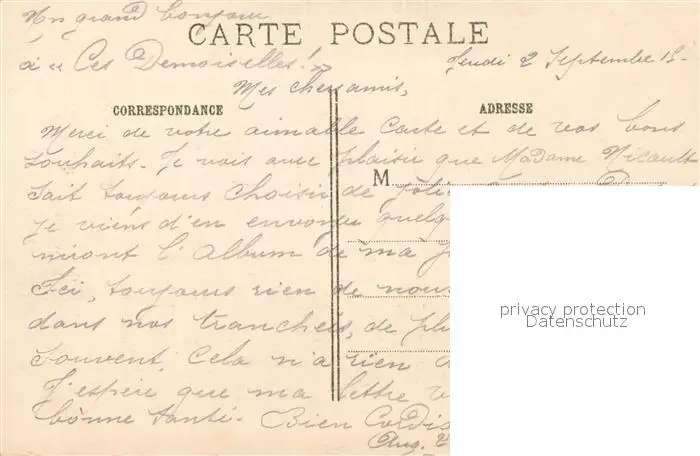 Un grand bonjour
à « Ces Demoiselles ! »
CARTE POSTALE
Jeudi 2 Septembre 15-
Mes chers amis,
CORRESPONDANCE
ADRESSE
Merci de votre aimable Carte et de vos bons
souhaits. Je vois avec plaisir que Madame Nicault
M
sait toujours choisir de jolies
Je viens d'en envoyer quelq
niront l'Album de ma
Ici, toujours rien de nou
dans nos tranchées, de plu
souvent, Cela n'a rien d
J'espère que ma lettre v
bonne santé. Bien Cordia
Aug.
privacy protection
Datenschutz